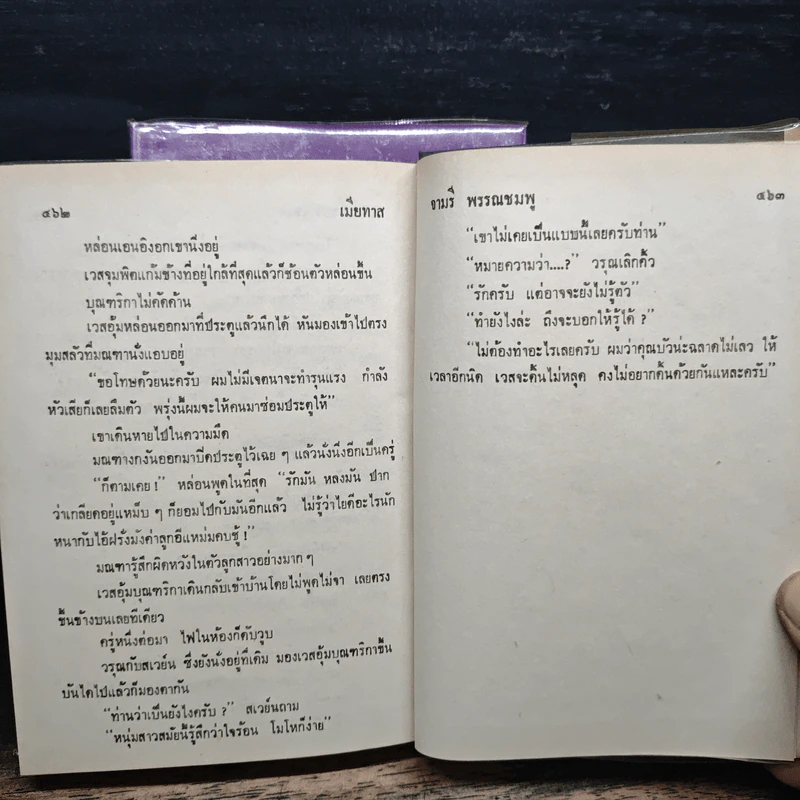 ๔๖๒ เมียทาส
หล่อนเอนอิงอกเขานิ่งอยู่
เวสจุมพิตแก้มข้างที่อยู่ใกล้ที่สุดแล้วก็ช้อนตัวหล่อนขึ้น
บุณฑริกาไม่คัดค้าน
เวสอุ้มหล่อนออกมาที่ประตูแล้วนึกได้ หันมองเข้าไปตรง
มุมสลัวที่มณฑานั่งแอบอยู่
“ขอโทษด้วยนะครับ ผมไม่มีเจตนาจะทำรุนแรง กำลัง
หัวเสียก็เลยลืมตัว พรุ่งนี้ผมจะให้คนมาซ่อมประตูให้”
เขาเดินหายไปในความมืด
มณฑางกงันออกมาปิดประตูไว้เฉย ๆ แล้วนั่งนิ่งอีกเป็นครู่
“ก็ตามเคย !” หล่อนพูดในที่สุด “รักมัน หลงมัน ปาก
ว่าเกลียดอยู่แหม็บ ๆ ก็ยอมไปกับมันอีกแล้ว ไม่รู้ว่าไยดีอะไรนัก
หนากับไอ้ฝรั่งมังค่าลูกอีแหม่มคบชู้ !”
มณฑารู้สึกผิดหวังในตัวลูกสาวอย่างมาก ๆ
เวสอุ้มบุณฑริกาเดินกลับเข้าบ้านโดยไม่พูดไม่จา เลยตรง
ขึ้นข้างบนเลยทีเดียว
ครู่หนึ่งต่อมา ไฟในห้องก็ดับวูบ
วรุณกับสเวย์น ซึ่งยังนั่งอยู่ที่เดิม มองเวสอุ้มบุณฑริกาขึ้น
บันไดไปแล้วก็มองตากัน
“ท่านว่าเป็นยังไงครับ ?” สเวย์นถาม
“หนุ่มสาวสมัยนี้รู้สึกว่าใจร้อน โมโหก็ง่าย”
จามรี พรรณชมพู ๔๖๓
“เขาไม่เคยเป็นแบบนี้เลยครับท่าน”
“หมายความว่า....?” วรุณเลิกคิ้ว
“รักครับ แต่อาจจะยังไม่รู้ตัว”
“ทำยังไงล่ะ ถึงจะบอกให้รู้ได้ ?”
“ไม่ต้องทำอะไรเลยครับ ผมว่าคุณบัวน่ะฉลาดไม่เลว ให้
เวลาอีกนิด เวสจะดิ้นไม่หลุด คงไม่อยากดิ้นด้วยกันแหละครับ”